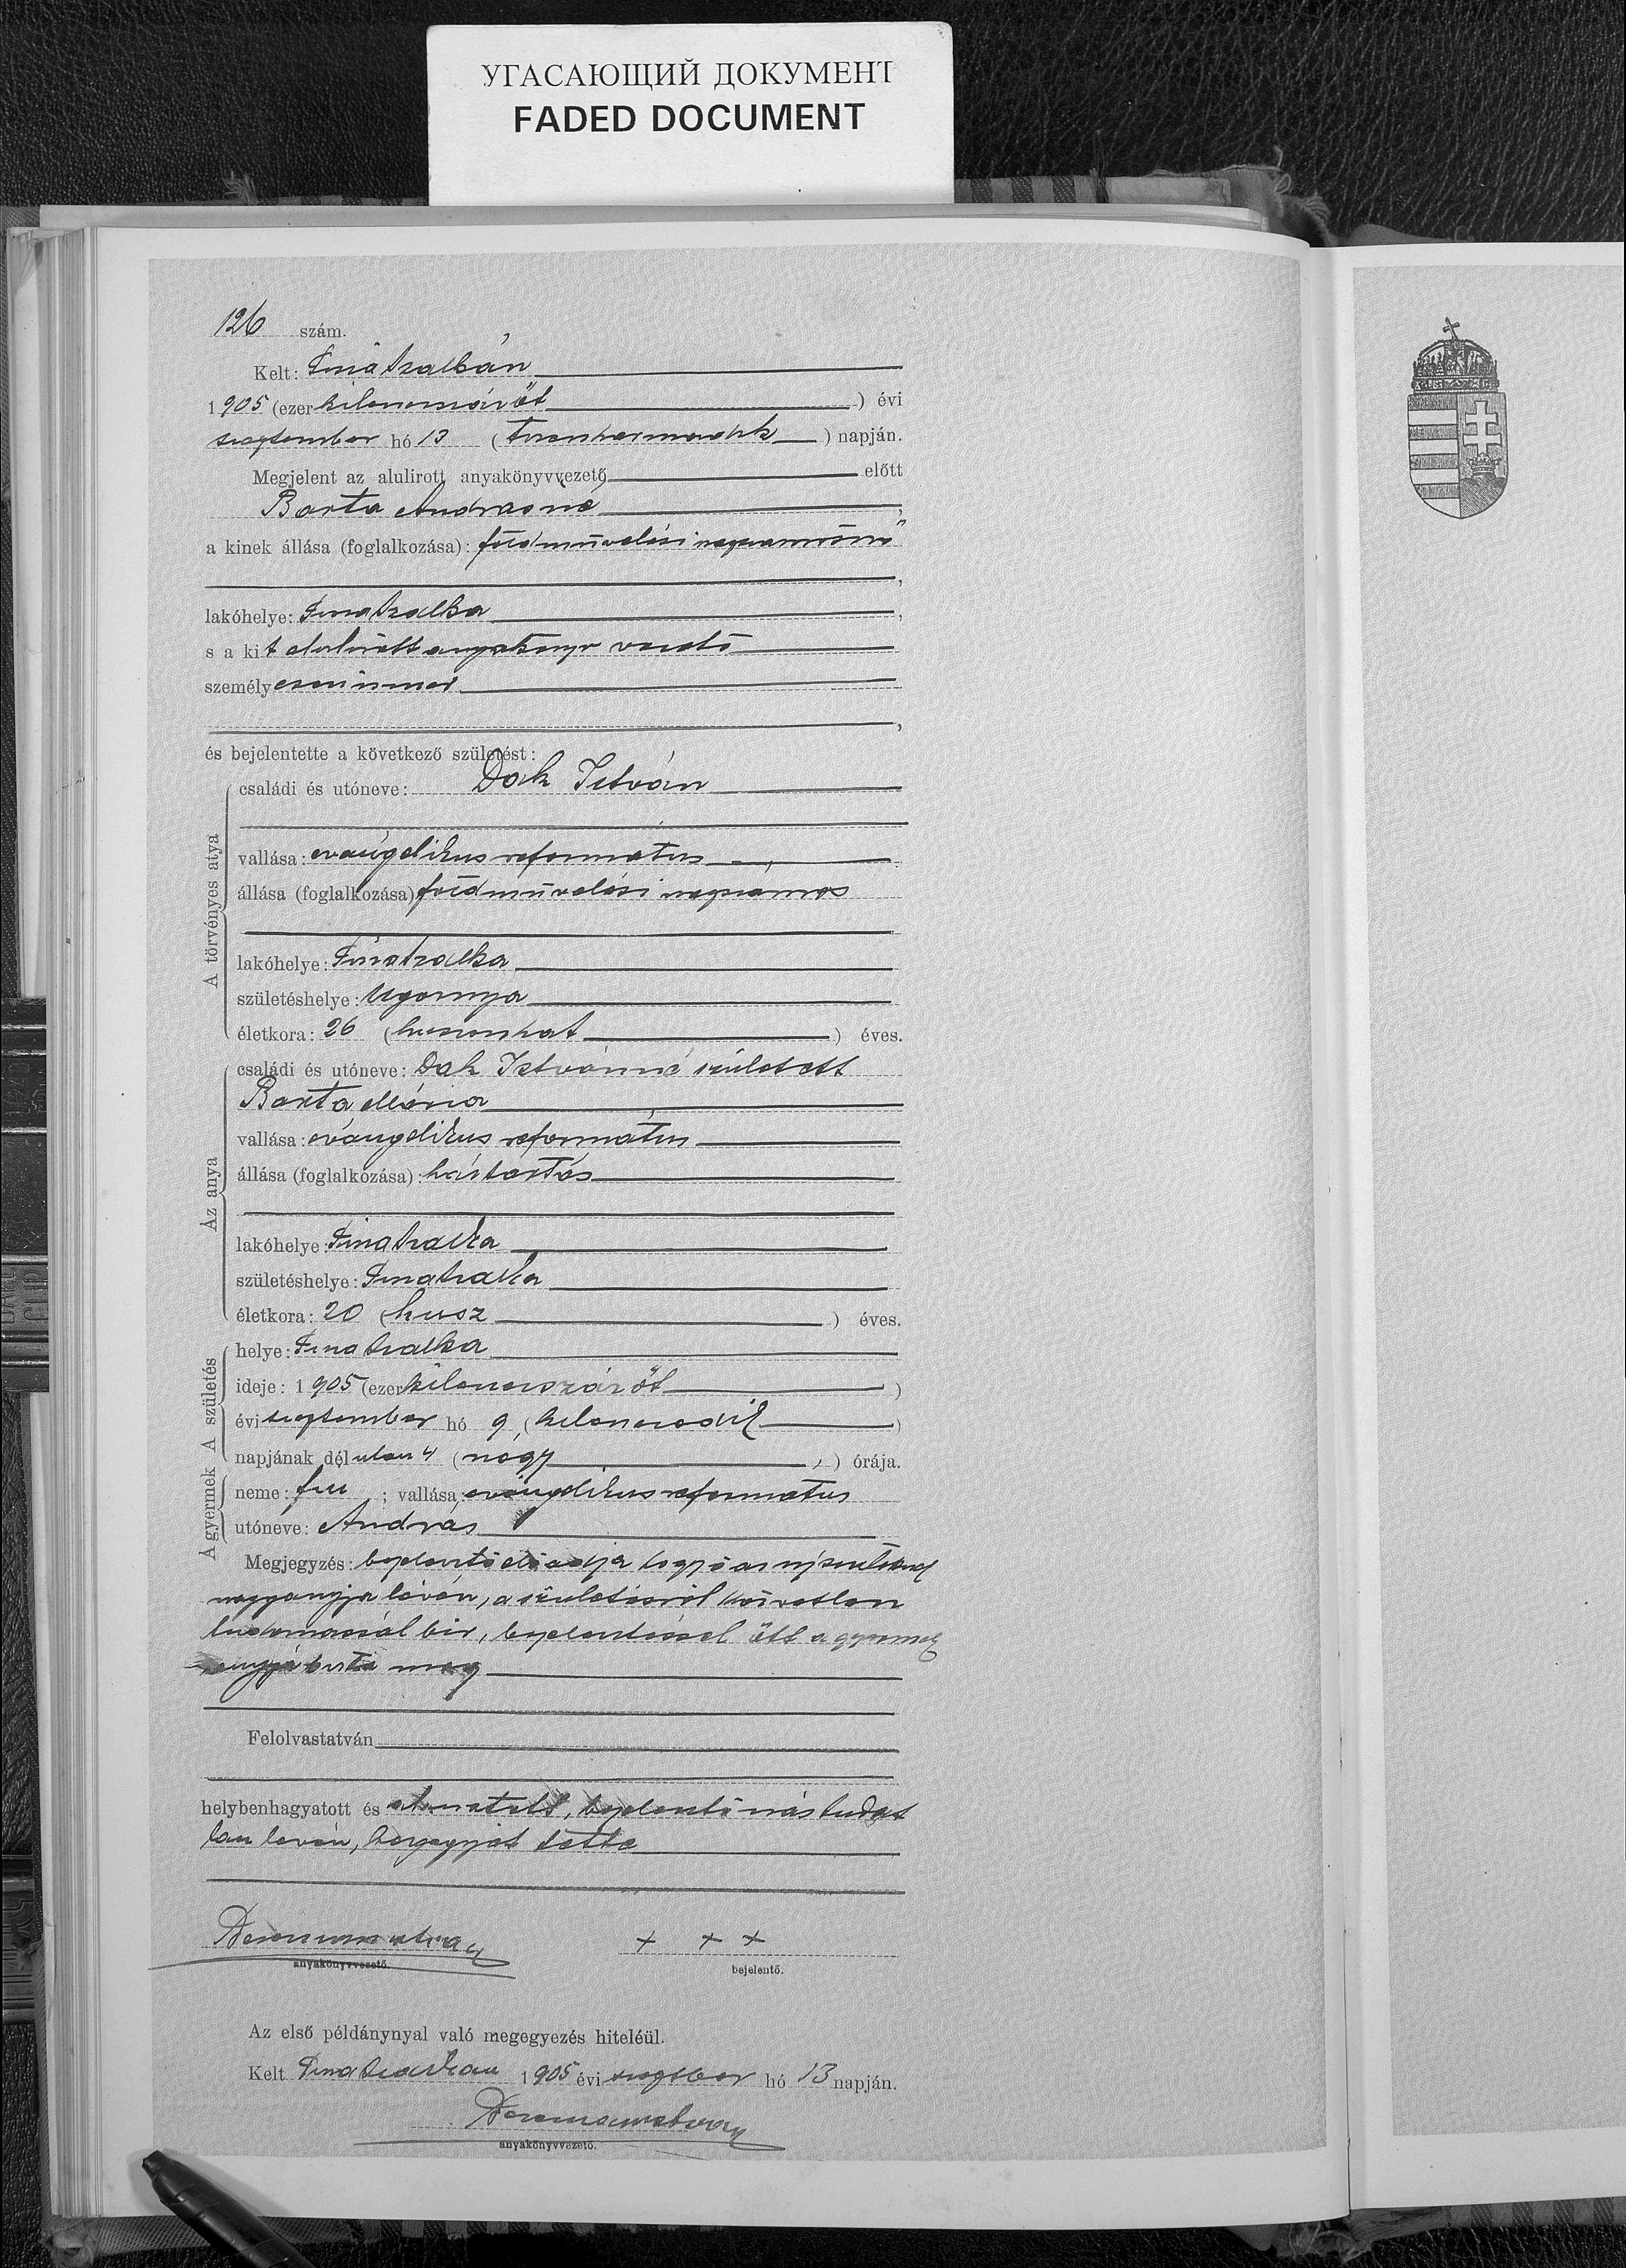 УГАСАЮЩИЙ ДОКУМЕНТ
FADED DOCUMENT
126 szám.
Kelt: Tiszaszalkán
1905 (ezer kilencszáz öt) évi
szeptember hó 13 (tizenharmadik) napján.
Megjelent az alulirott anyakönyvvezető előtt
Barta Andrásné,
a kinek állása (foglalkozása): földmüvelési napszámosnő
,
lakóhelye: Tiszaszalka,
s a kit alulirott anyakönyvvezető
személyesen ismer
,
és bejelentette a következő születést:
A törvényes atya
családi és utóneve: Dak István
vallása: evángelikus református
állása (foglalkozása) földmüvelési napszámos
lakóhelye: Tiszaszalka
születéshelye: Ugornya
életkora: 26 (huszonhat) éves.
Az anya
családi és utóneve: Dak Istvánné született
Barta Mária
vallása: evángelikus református
állása (foglalkozása): háztartás
lakóhelye: Tiszaszalka
születéshelye: Tiszaszalka
életkora: 20 (husz) éves.
A gyermek A születés
helye: Tiszaszalka
ideje: 1905 (ezer kilencszáz öt)
évi szeptember hó 9 (kilencedik)
napjának dél utan 4 (négy) órája.
neme: fiu; vallása: evángelikus református
utóneve: András
Megjegyzés: bejelentő előadja hogy ő az ujszülöttnek
nagyanyja lévén, a születésről közvetlen
tudomással bir, bejelentéssel őtt a gyermek
anyja bizta meg
Felolvastatván
helybenhagyatott és aláiratott, bejelentő irástudat
lan lévén, kézjegyét tette
anyakönyvvezető.
+ + +
bejelentő.
Az első példánynyal való megegyezés hiteléül.
Kelt Tiszaszalkán 1905 évi szeptber hó 13 napján.
anyakönyvvezető.